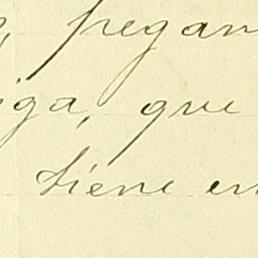 , pegan
iga, que
tiene en